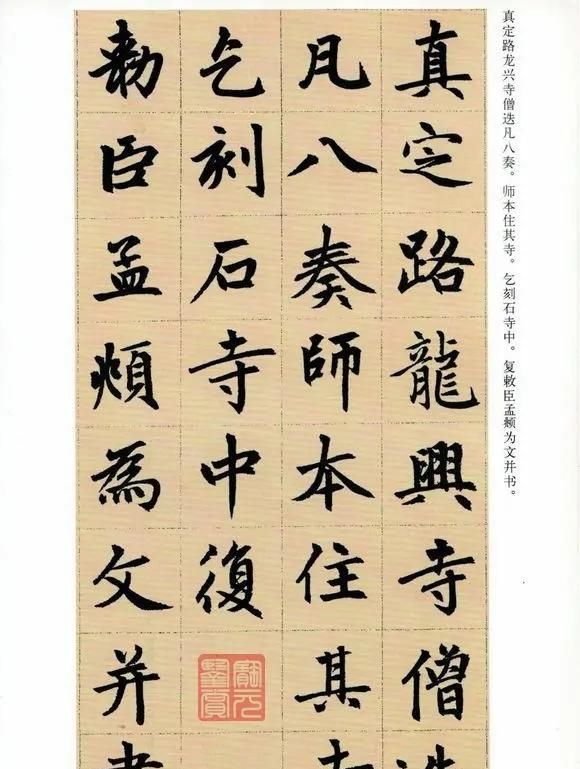 真定路龙兴寺僧迭凡八奏。师本住其寺。乞刻石寺中。复敕臣孟頫为文并书。
真定路龍興寺僧
凡八奏師本住其
乞刻石寺中復
勅臣孟頫為文并
寶元鑒賞